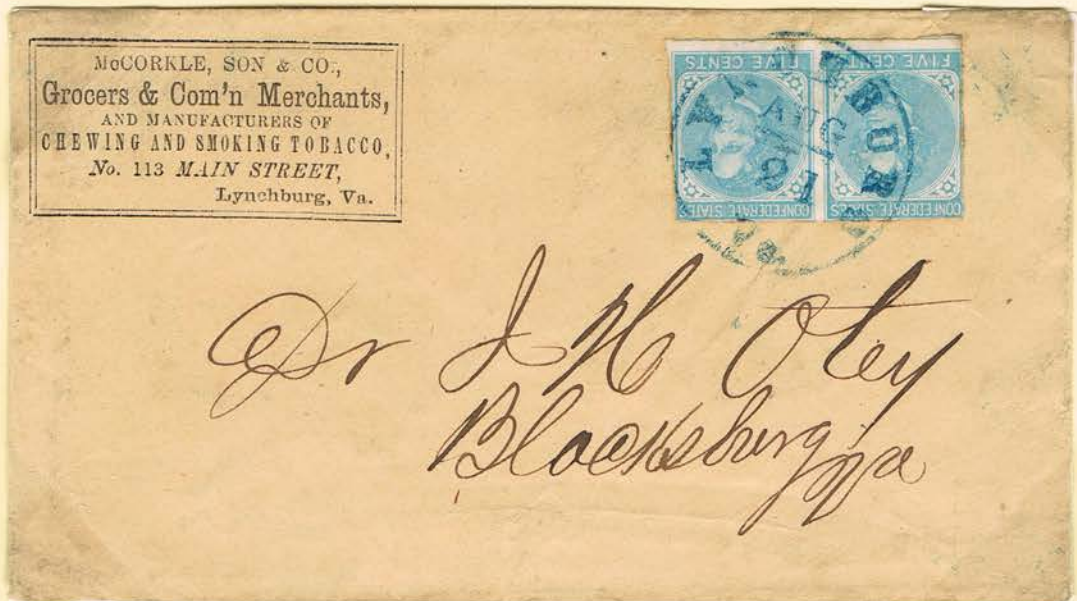 McCORKLE, SON & CO.,
Grocers & Com'n Merchants,
AND MANUFACTURERS OF
CHEWING AND SMOKING TOBACCO,
No. 113 MAIN STREET,
Lynchburg, Va.
FIVE CENTS
FIVE CENTS
CONFEDERATE STATES
CONFEDERATE STATES
LYNCHBURG
AUG
VA
Dr J H Otey
Blacksburg Va